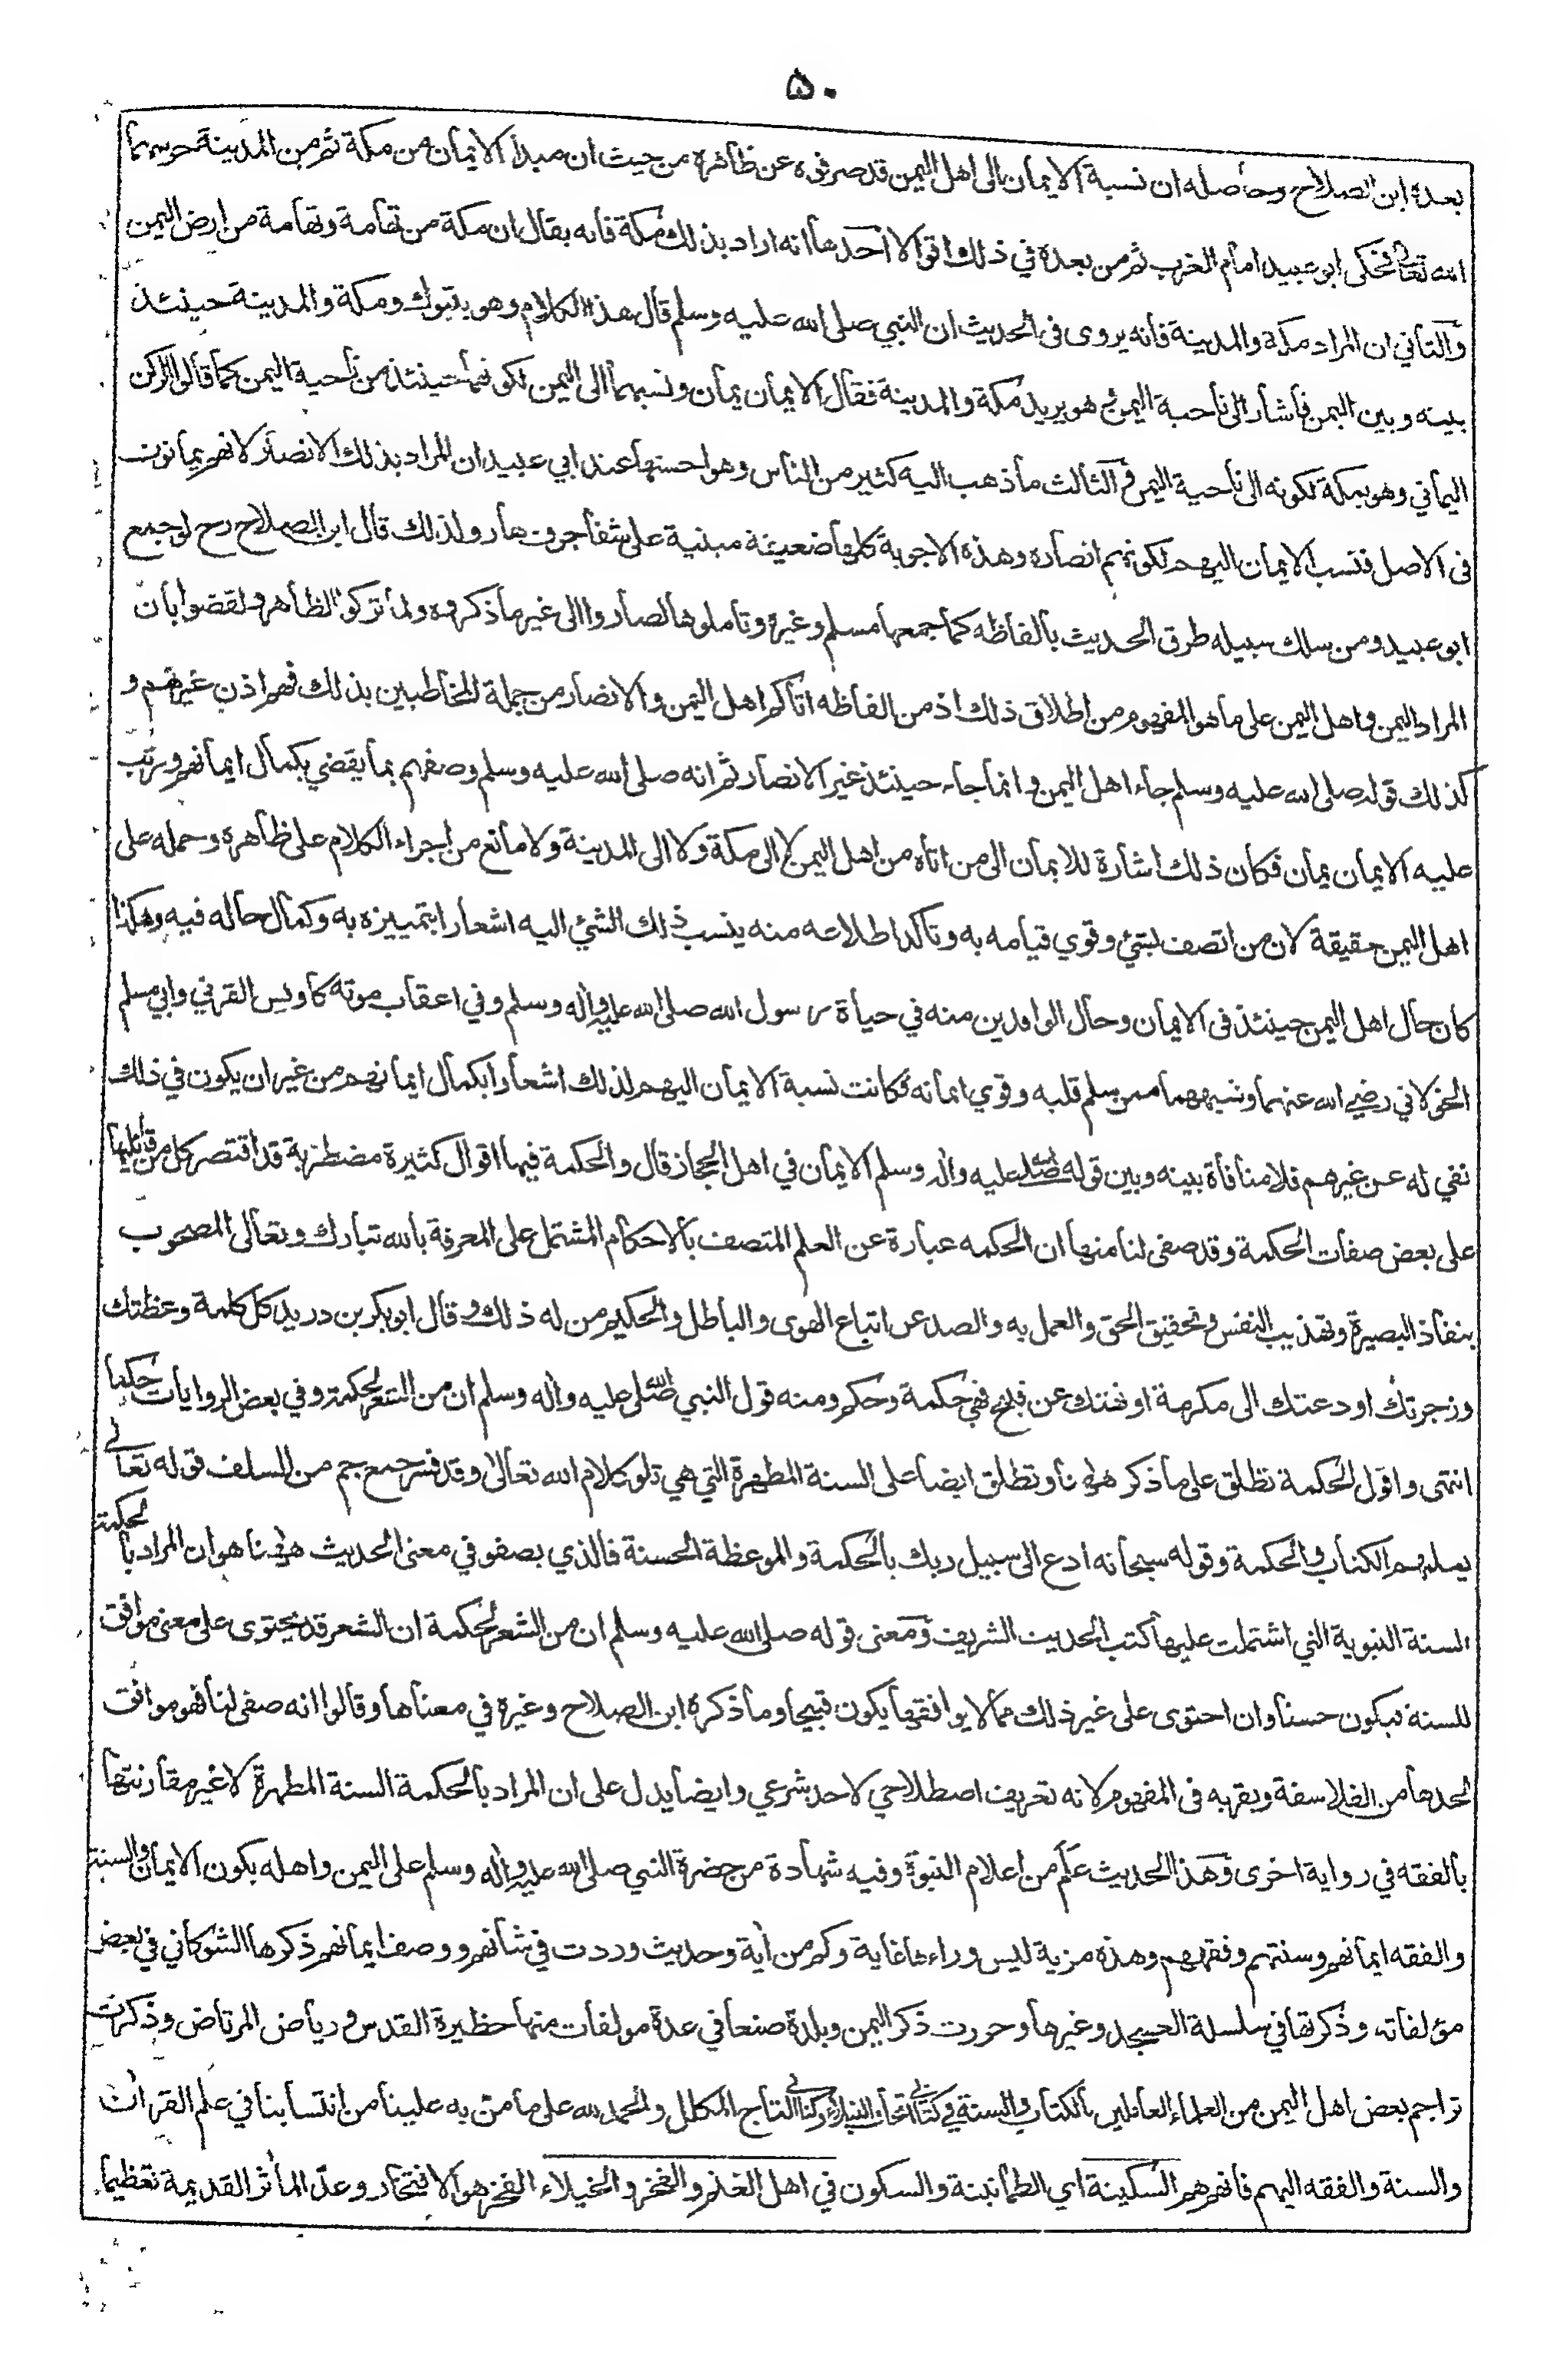 ۵۰
بعده ابن الصلاح وحاصله ان نسبة الايمان الى اهل اليمن قد صرفوه عن ظاهره من حيث ان مبدأ الايمان من مكة ثم من المدينة حرسهما
الله تعالى فحكى ابو عبيد امام الغرب ثم من بعده في ذلك اقوالا احدها انه اراد بذلك مكة فانه يقال ان مكة من تهامة وتهامة من ارض اليمن
والثاني ان المراد مكة والمدينة فانه يروى في الحديث ان النبي صلى الله عليه وسلم قال هذا الكلام وهو بتبوك ومكة والمدينة حينئذ
بينه وبين اليمن فاشار الى ناحية اليمن وهو يريد مكة والمدينة فقال الايمان يمان ونسبهما الى اليمن لكونهما حينئذ من ناحية اليمن كما قالوا الركن
اليماني وهو بمكة لكونه الى ناحية اليمن والثالث ما ذهب اليه كثير من الناس وهو احسنها عند ابي عبيد ان المراد بذلك الانصار لانهم يمانون
في الاصل فنسب الايمان اليهم لكونهم انصاره وهذه الاجوبة كلها ضعيفة مبنية على شفا جرف هار ولذلك قال ابن الصلاح رح لو جمع
ابو عبيد ومن سلك سبيله طرق الحديث بالفاظه كما جمعها مسلم وغيره وتاملوها لصاروا الى غير ما ذكروه ولما تركوا الظاهر ولقضوا بان
المراد اليمن واهل اليمن على ما هو المفهوم من اطلاق ذلك اذ من الفاظه اتاكم اهل اليمن والانصار من جملة المخاطبين بذلك فهم اذن غيرهم و
كذلك قوله صلى الله عليه وسلم جاء اهل اليمن وانما جاء حينئذ غير الانصار ثم انه صلى الله عليه وسلم وصفهم بما يقضي بكمال ايمانهم ورتب
عليه الايمان يمان فكان ذلك اشارة للايمان الى من اتاه من اهل اليمن لا الى مكة ولا الى المدينة ولا مانع من اجراء الكلام على ظاهره وحمله على
اهل اليمن حقيقة لان من اتصف بشئ وقوي قيامه به وتاكد اطلاعه منه ينسب ذلك الشئ اليه اشعارا بتمييزه به وكمال حاله فيه وهكذا
كان حال اهل اليمن حينئذ في الايمان وحال الوافدين منه في حياة رسول الله صلى الله عليه واله وسلم وفي اعقاب موته كاويس القرني وابي مسلم
الخولاني رضي الله عنهما وشبههما ممن سلم قلبه وقوي ايمانه فكانت نسبة الايمان اليهم لذلك اشعارا بكمال ايمانهم من غير ان يكون في ذلك
نفي له عن غيرهم فلا منافاة بينه وبين قوله صلى الله عليه واله وسلم الايمان في اهل الحجاز قال والحكمة فيها اقوال كثيرة مضطربة قد اقتصر كل من قائليها
على بعض صفات الحكمة وقد صفى لنا منها ان الحكمه عبارة عن العلم المتصف بالاحكام المشتمل على المعرفة بالله تبارك وتعالى المصحوب
بنفاذ البصيرة وتهذيب النفس وتحقيق الحق والعمل به والصد عن اتباع الهوى والباطل والحكيم من له ذلك وقال ابو بكر بن دريد كل كلمة وعظتك
وزجرتك او دعتك الى مكرمة او نهتك عن قبيح فهي حكمة وحكم ومنه قول النبي صلى الله عليه واله وسلم ان من الشعر لحكمة وفي بعض الروايات حكما
انتهى واقول الحكمة تطلق على ما ذكر ههنا وتطلق ايضا على السنة المطهرة التي هي تلو كلام الله تعالى وقد فسر جمع جم من السلف قوله تعالى
يعلمهم الكتاب والحكمة وقوله سبحانه ادع الى سبيل ربك بالحكمة والموعظة الحسنة فالذي يصفو في معنى الحديث ههنا هو ان المراد بالحكمة
السنة النبوية التي اشتملت عليها كتب الحديث الشريف ومعنى قوله صلى الله عليه وسلم ان من الشعر لحكمة ان الشعر قد يحتوى على معنى موافق
للسنة فيكون حسنا وان احتوى على غير ذلك مما لا يوافقها يكون قبيحا وما ذكره ابن الصلاح وغيره في معناها وقالوا انه صفى لنا فهو موافق
لحدها من الفلاسفة ويقربه في المفهوم لانه تعريف اصطلاحي لا حد شرعي وايضا يدل على ان المراد بالحكمة السنة المطهرة لا غير مقارنتها
بالفقه في رواية اخرى وهذا الحديث علم من اعلام النبوة وفيه شهادة من حضرة النبي صلى الله عليه واله وسلم على اليمن واهله بكون الايمان والسنة
والفقه ايمانهم وسنتهم وفقههم وهذه مزية ليس وراءها غاية وكم من اية وحديث وردت في شانهم ووصف ايمانهم ذكرها الشوكاني في بعض
مؤلفاته وذكرتها في سلسلة العسجد وغيرها وحررت ذكر اليمن وبلدة صنعا في عدة مولفات منها حظيرة القدس ورياض المرتاض وذكرت
تراجم بعض اهل اليمن من العلماء العاملين بالكتاب والسنة في كتابي اتحاف النبلاء وكتابي التاج المكلل والحمد لله على ما من به علينا من انتسابنا في علم القران
والسنة والفقه اليهم فانهم هم السكينة اي الطمانينة والسكون في اهل الغنم والفخر والخيلاء الفخر هو الافتخار وعد المأثر القديمة تعظيما